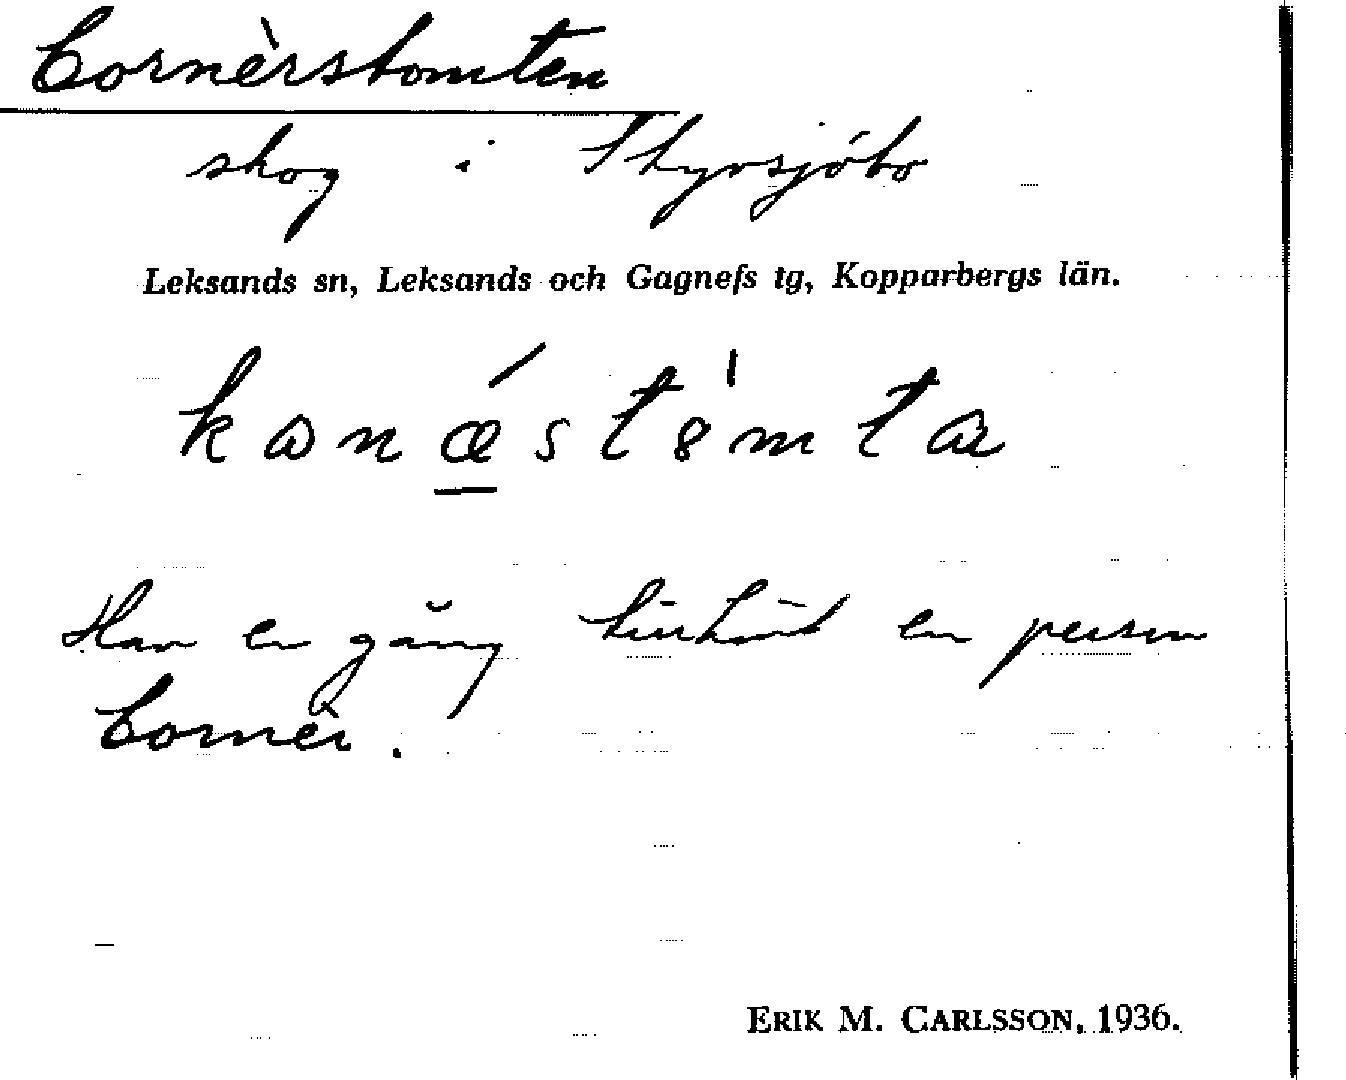 Cornèrstomten
skog i Styrsjöbo
Leksands sn, Leksands och Gagnefs tg, Kopparbergs län.
Har en gång tillhört en person
Cornèr.
ERIK M. CARLSSON, 1936.